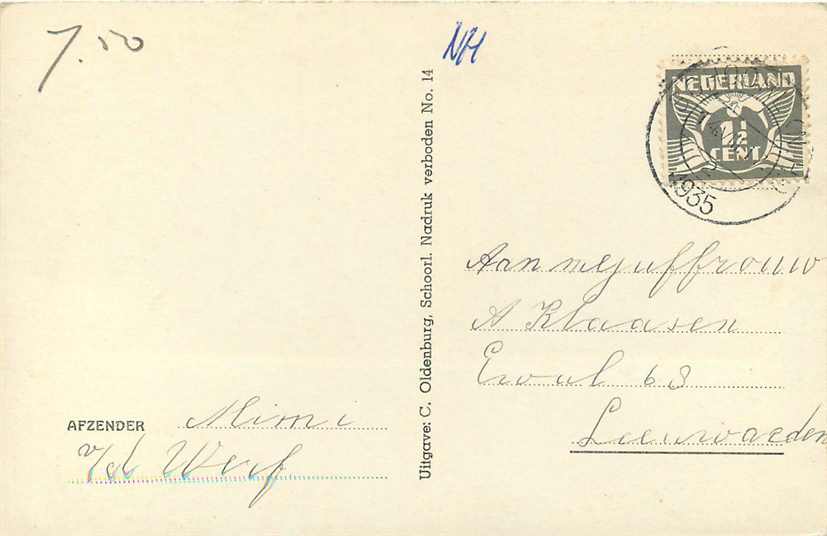 7.50
NH
NEDERLAND
1½
CENT
1935
Uitgave: C. Oldenburg, Schoorl. Nadruk verboden No. 14
Aan mejuffrouw
A Klaasen
Ewal 63
Leeuwarden
AFZENDER Mimi
v/d Werf